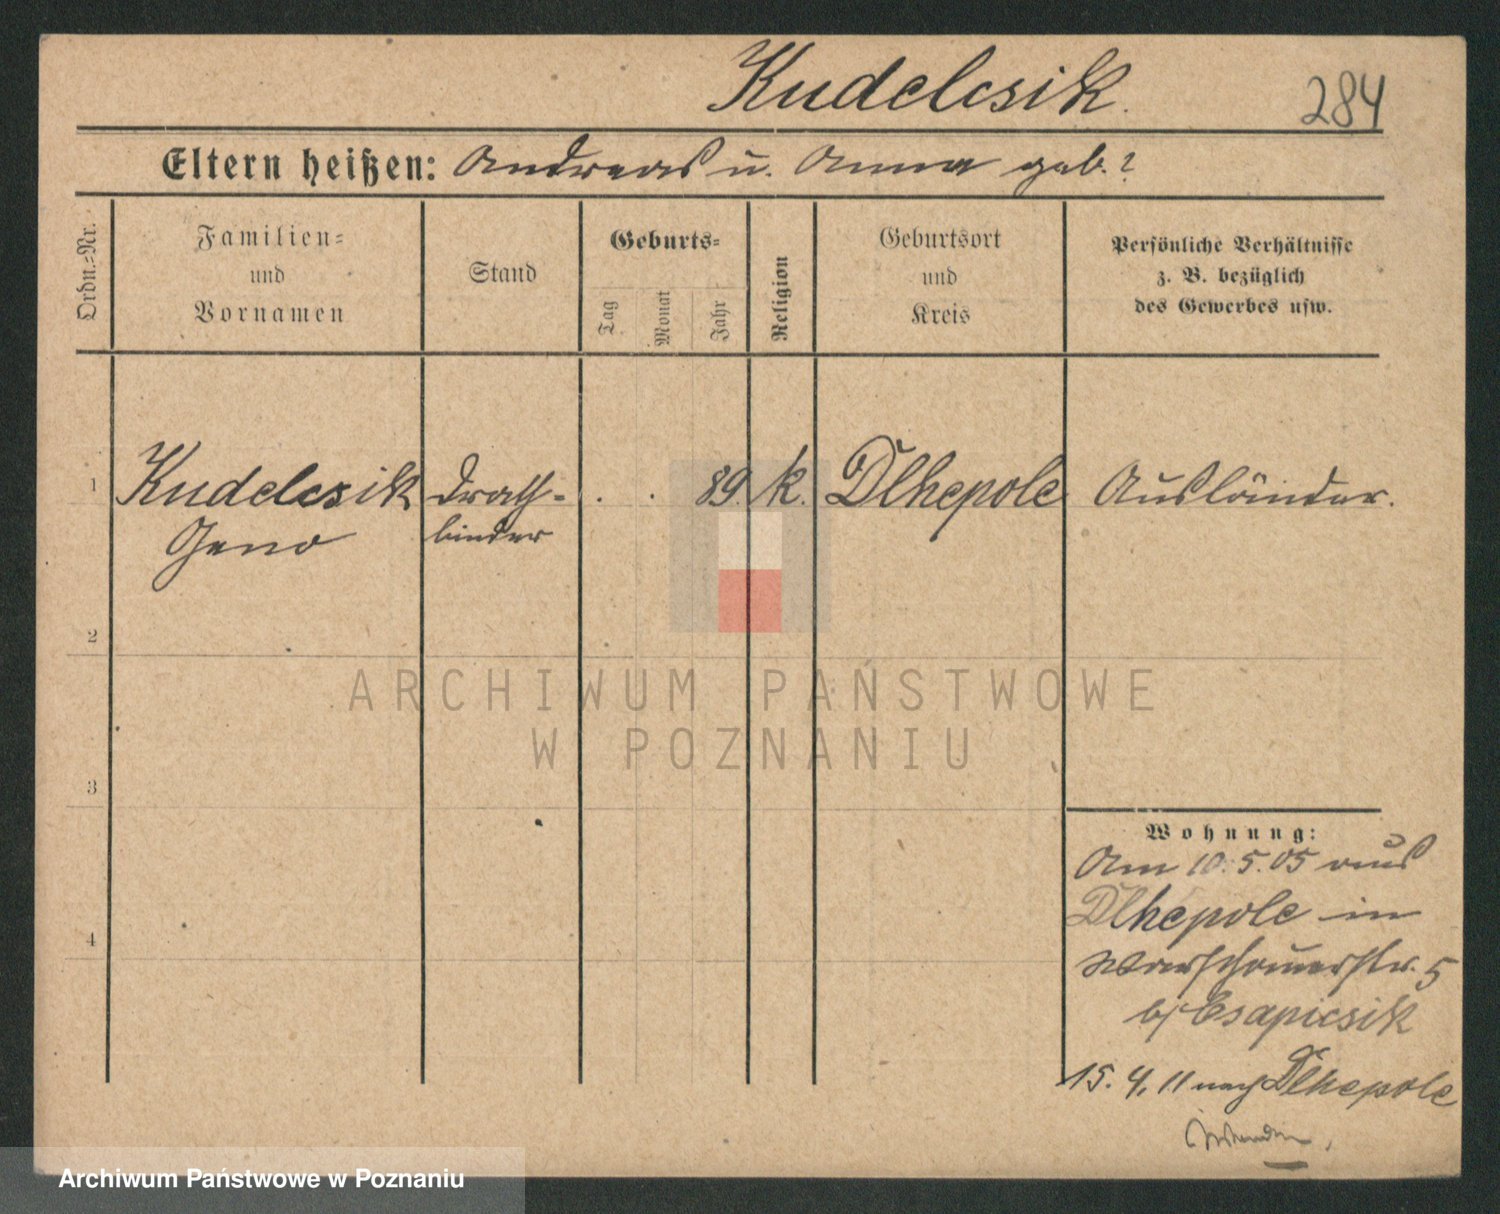 Kudelcsik.
284
Eltern heißen: Andreas u. Anna geb. ?
Ordn.-Nr.
Familien-
und
Vornamen
Stand
Geburts-
Tag
Monat
Jahr
Religion
Geburtsort
und
Kreis
Persönliche Verhältnisse
z. B. bezüglich
des Gewerbes usw.
1 Kudelcsik Drath- . . 89. k. Dlhepole Ausländer.
Geno binder
2
3
4
ARCHIWUM PAŃSTWOWE
W POZNANIU
Wohnung:
Am 10.5.05 aus
Dlhepole in
Warschauerstr. 5
bj Csapicsik
15.4.11 nach Dlhepole
Archiwum Państwowe w Poznaniu